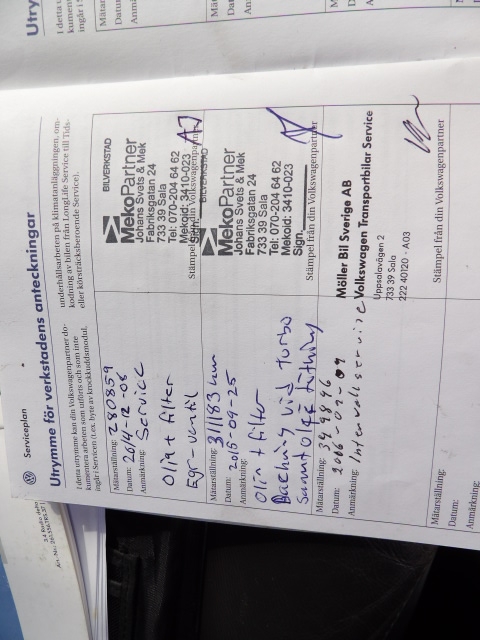 Serviceplan
Utrymme för verkstadens anteckningar
I detta utrymme kan din Volkswagenpartner do-
kumentera arbeten som utförts och som inte
ingår i Servicen (t.ex. byte av krockkuddsmodul,
underhållsarbeten på klimatanläggningen, om-
kodning av bilen från LongLife Service till Tids-
eller körsträcksberoende Service).
Mätarställning: 280859
Datum: 2014-12-08
Anmärkning: Service
Olja + filter
Egr-ventil
BILVERKSTAD
MekoPartner
Johans Svets & Mek
Fabriksgatan 24
733 39 Sala
Tel: 070-204 64 62
Mekoid: 3410-023
Sign.
Stämpel från din Volkswagenpartner
Mätarställning: 311183 km
Datum: 2015-09-25
Anmärkning:
Olja + filter
Packning vid turbo
Samt olje tätning
BILVERKSTAD
MekoPartner
Johans Svets & Mek
Fabriksgatan 24
733 39 Sala
Tel: 070-204 64 62
Mekoid: 3410-023
Sign.
Stämpel från din Volkswagenpartner
Mätarställning: 349846
Datum:
Anmärkning: Intervallservice
Möller Bil Sverige AB
Volkswagen Transportbilar Service
Uppsalavägen 2
733 39 Sala
222 40120 - A03
Stämpel från din Volkswagenpartner
Mätarställning:
Datum:
Anmärkning: